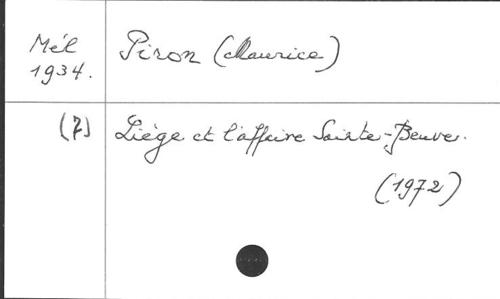 Mél Piron (Maurice)
1934.
(7) Liège et l'affaire Sainte-Beuve.
(1972)